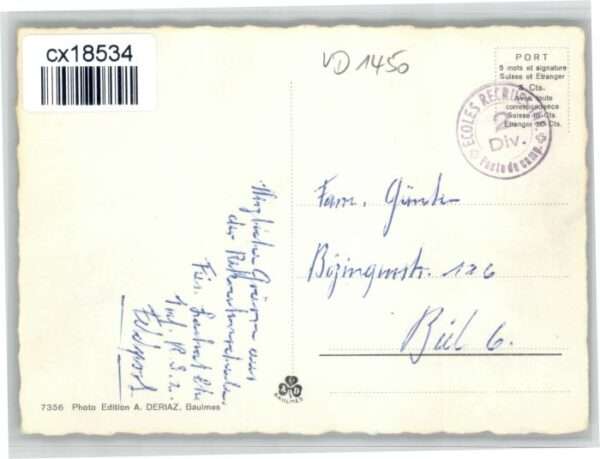 cx18534
VD 1450
PORT
5 mots et signature
Suisse et Etranger
5 Cts.
Avec toute
correspondance
Suisse 10 Cts.
Etranger 20 Cts.
ECOLES RECRUES
2
Div.
Poste de camp.
Fam. Günter
Bözingenstr. 126
Biel 6.
Herzliche Grüsse aus
der Rekrutenschule.
Füs.
Inf. R.S. 2.
Feldpost
7356 Photo Edition A. DERIAZ, Baulmes
A D
BAULMES